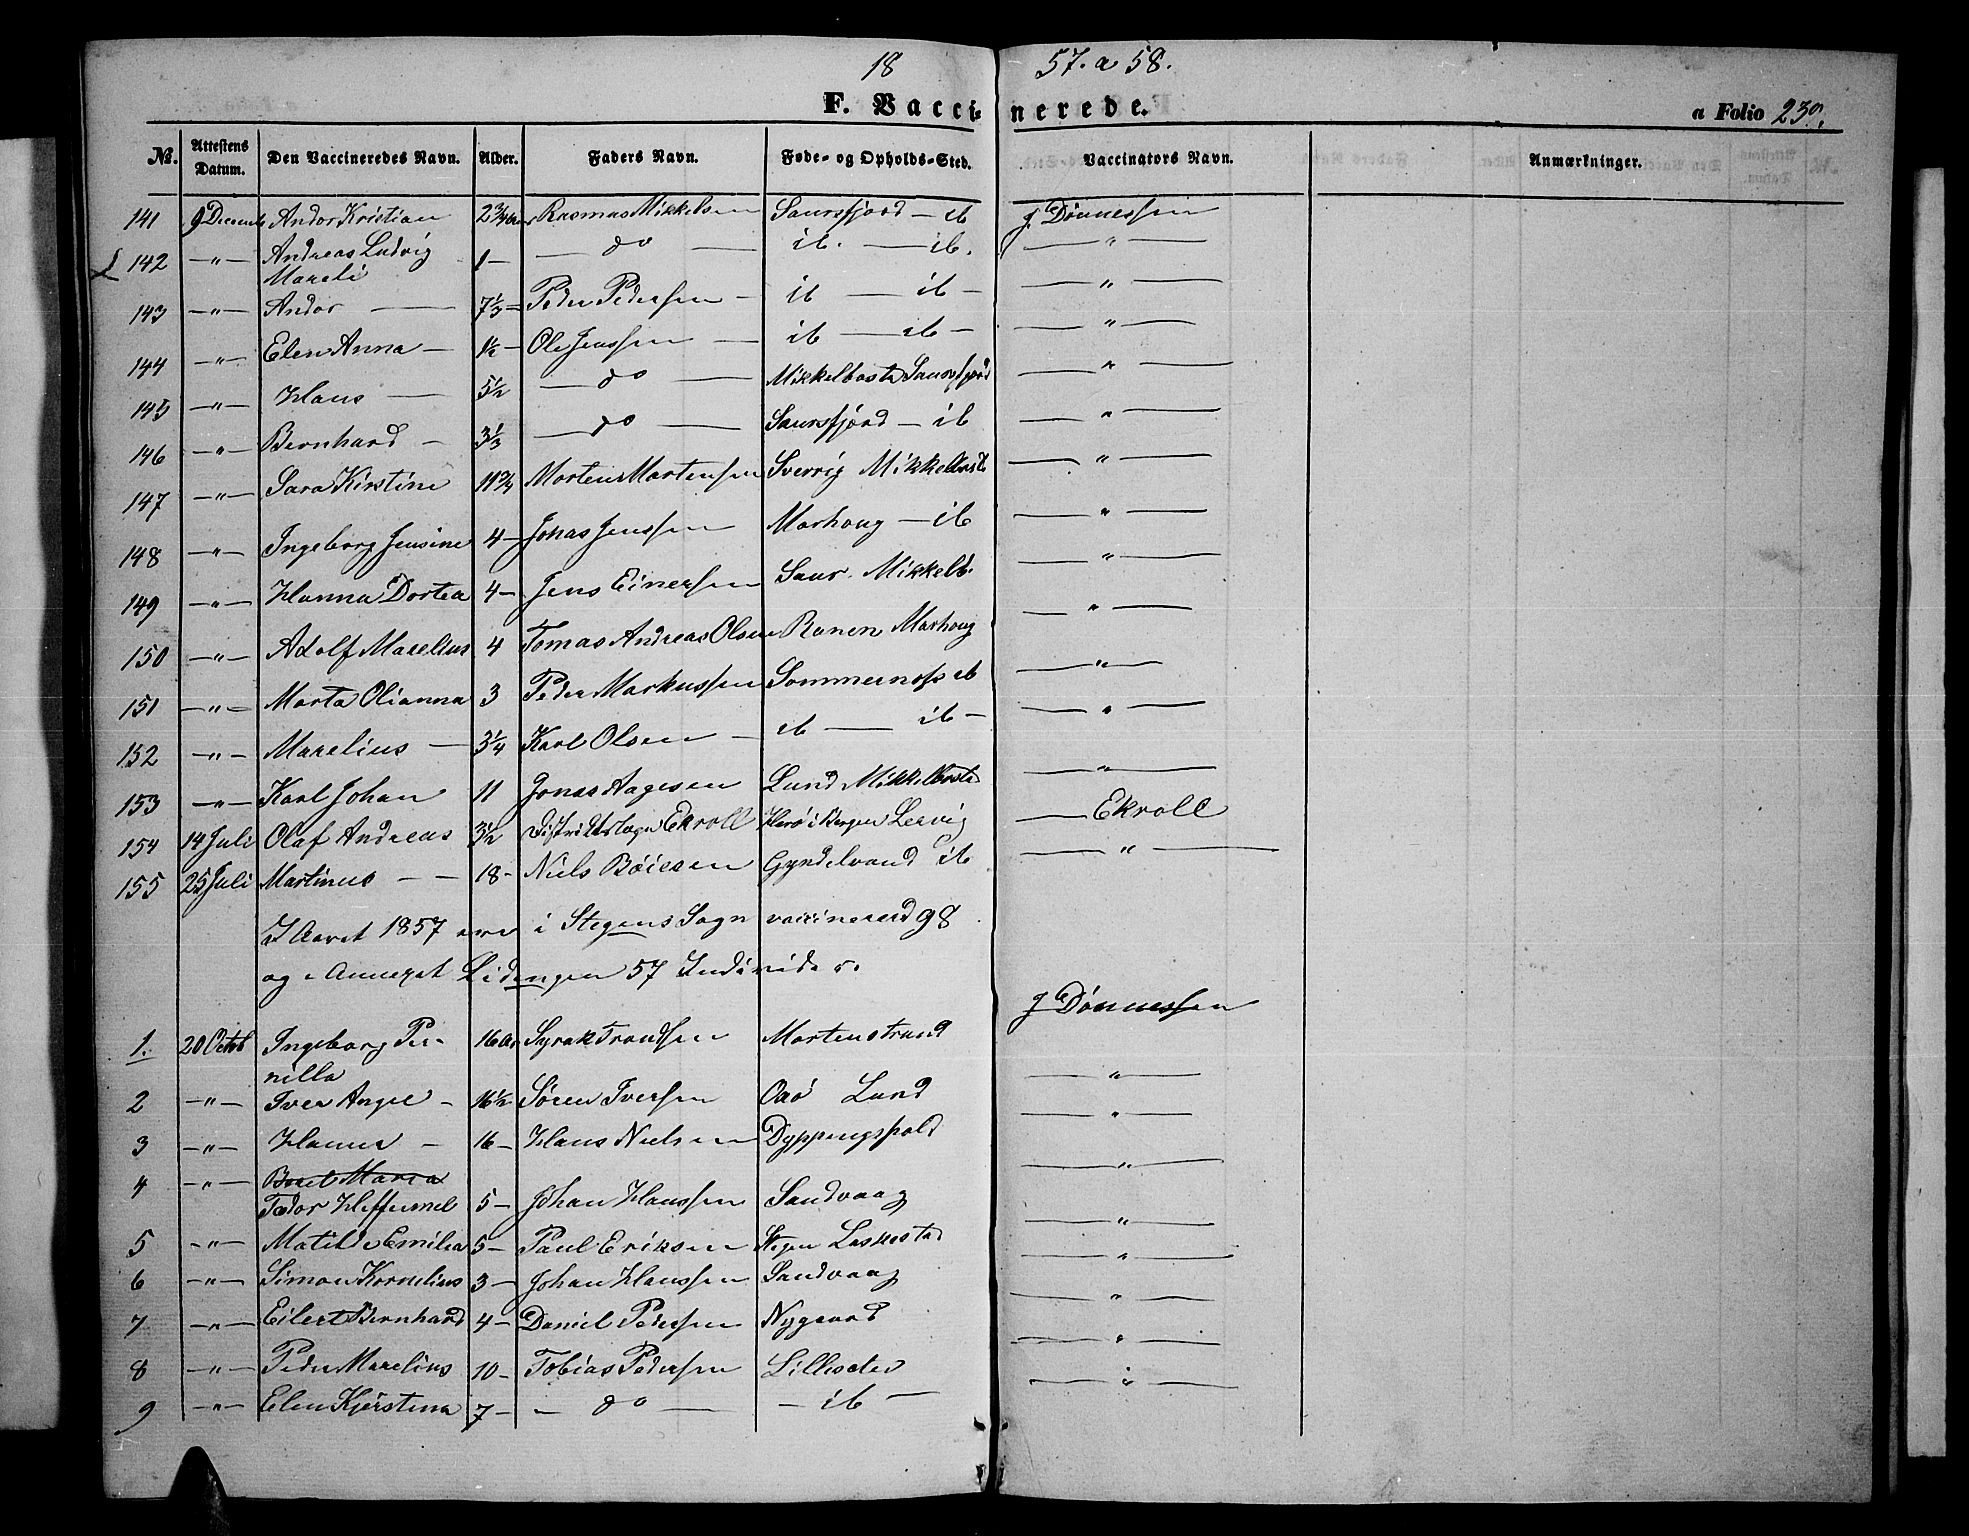 18 57. a 58.
F. Vaccinerede. a Folio 230.
No. Attestens Datum. Den Vaccineredes Navn. Alder. Faders Navn. Føde- og Opholds-Sted. Vaccinators Navn. Anmærkninger.
141 9 Decemb Andor Kristian 2 3/4 Rasmus Mikkelsen Saursfjord — ib J. Dönnessen
142 —"— Andreas Ludvig Mareli 1 — — do — ib. — ib. —"—
143 —"— Andor — 7 1/3 — Peder Pedersen — ib — ib — —"—
144 —"— Elen Anna — 1 1/2 — Ole Jenssen — ib — ib — —"—
145 —"— Hans — 5 1/2 — do — Mikkelbosta Saursfjord —"—
146 —"— Bernhard — 3 1/3 — do — Saursfjord — ib —"—
147 —"— Sara Kirstine 11 3/4 Morten Mortensen Sverrig Mikkelbost —"—
148 —"— Ingeborg Jensine 4 — Jonas Jenssen Marhoug — ib —"—
149 —"— Hanna Dortea 4 — Jens Einersen Saur. Mikkelb. —"—
150 —"— Adolf Marelius 4 Tomas Andreas Olsen Ranen Marhoug —"—
151 —"— Marta Olianna 3 Peder Markussen Sommerness ib —"—
152 —"— Marelius — 3 1/4 Karl Olsen — ib — ib — —"—
153 —"— Karl Johan 11 Jonas Aagesen Lund Mikkelbosta —"—
154 14 Juli Olaf Andreas 3 1/2 Distriktslæge Ekroll Herö i Bergen Lervig — Ekroll
155 25 Juli Martinus — — 18 — Niels Böiesen Gyndelvand ib —"—
I Aaret 1857 ere i Stegens Sogn vaccinered 98
og i Annexet Lidingen 57 Individer.
1. 20 Octob Ingeborg Per- 16 Syrak Trondsen Mortenstrand J. Dönnessen
nilla
2 —"— Iver Angel — 16 1/2 Sören Iversen Oaö Lund —"—
3 —"— Hanna — 16 — Hans Nielsen Dyppingspold —"—
4 —"— Beret Maria
Tedor Heffermel 5 — Johan Hanssen Sandvaag —"—
5 —"— Matilde Emilia 5 — Paul Eriksen Stegen Laskestad —"—
6 —"— Simon Kornelius 3 — Johan Hanssen Sandvaag —"—
7 —"— Eilert Bernhard 4 — Daniel Pedersen Nygaard —"—
8 —"— Peder Marelius 10 — Tobias Pedersen Lillesæter —"—
9 —"— Elen Kjerstina 7 — — do — — ib — —"—